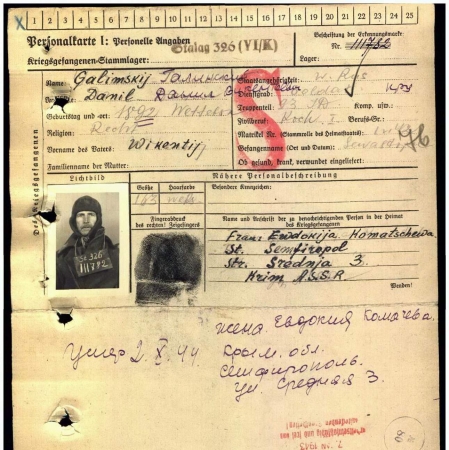 X 1 2 3 4 5 6 7 8 9 10 11 12 13 14 15 16 17 18 19 20 21 22 23 24 25
Personalkarte I: Personelle Angaben
Beschriftung der Erkennungsmarke
Stalag 326 (VI/K)
Nr. 111782
Kriegsgefangenen-Stammlager:
Lager:
Des Kriegsgefangenen
Name: Galimskij
Staatsangehörigkeit: W. Rus
Danil Данил
Dienstgrad:
Truppenteil: Komp. usw.:
Geburtstag und -ort:
Zivilberuf: Berufs-Gr.:
Religion:
Matrikel Nr. (Stammrolle des Heimatstaates):
Vorname des Vaters: Wikentij
Gefangennahme (Ort und Datum):
Familienname der Mutter:
Ob gesund, krank, verwundet eingeliefert:
96
Lichtbild
Nähere Personalbeschreibung
Größe Haarfarbe
Besondere Kennzeichen:
163
Fingerabdruck
des rechten Zeigefingers
Name und Anschrift der zu benachrichtigenden Person in der Heimat
des Kriegsgefangenen
Frau: Ewdokija Homatschewa
St. Semfiropol
Str. Srednja 3.
Krim A.S.S.R
Wenden!
St 326
111782
жена Евдокия Комачева.
Умер 2. X. 44 Крым. обл.
Семфирополь.
ул. Средная 3.
1943